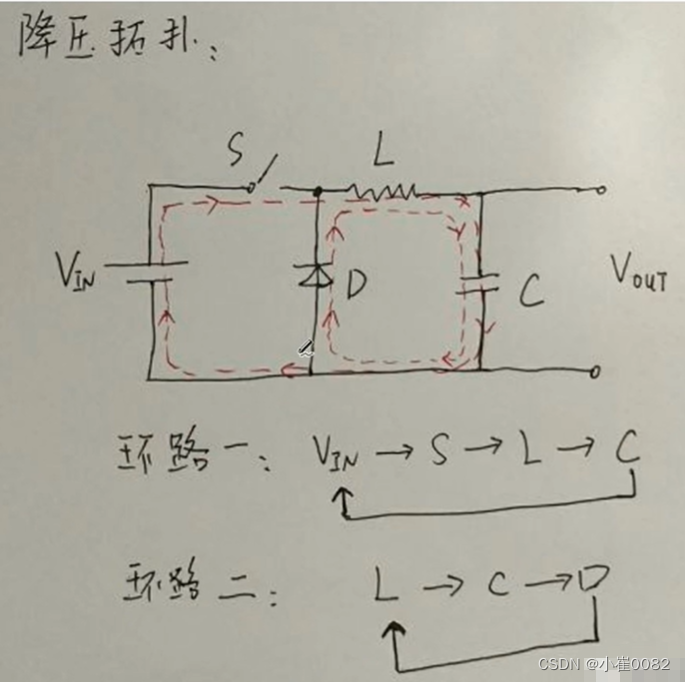 降压拓扑:
S L
V_IN D C V_OUT
环路一: V_IN → S → L → C
环路二: L → C → D
CSDN @小崔0082